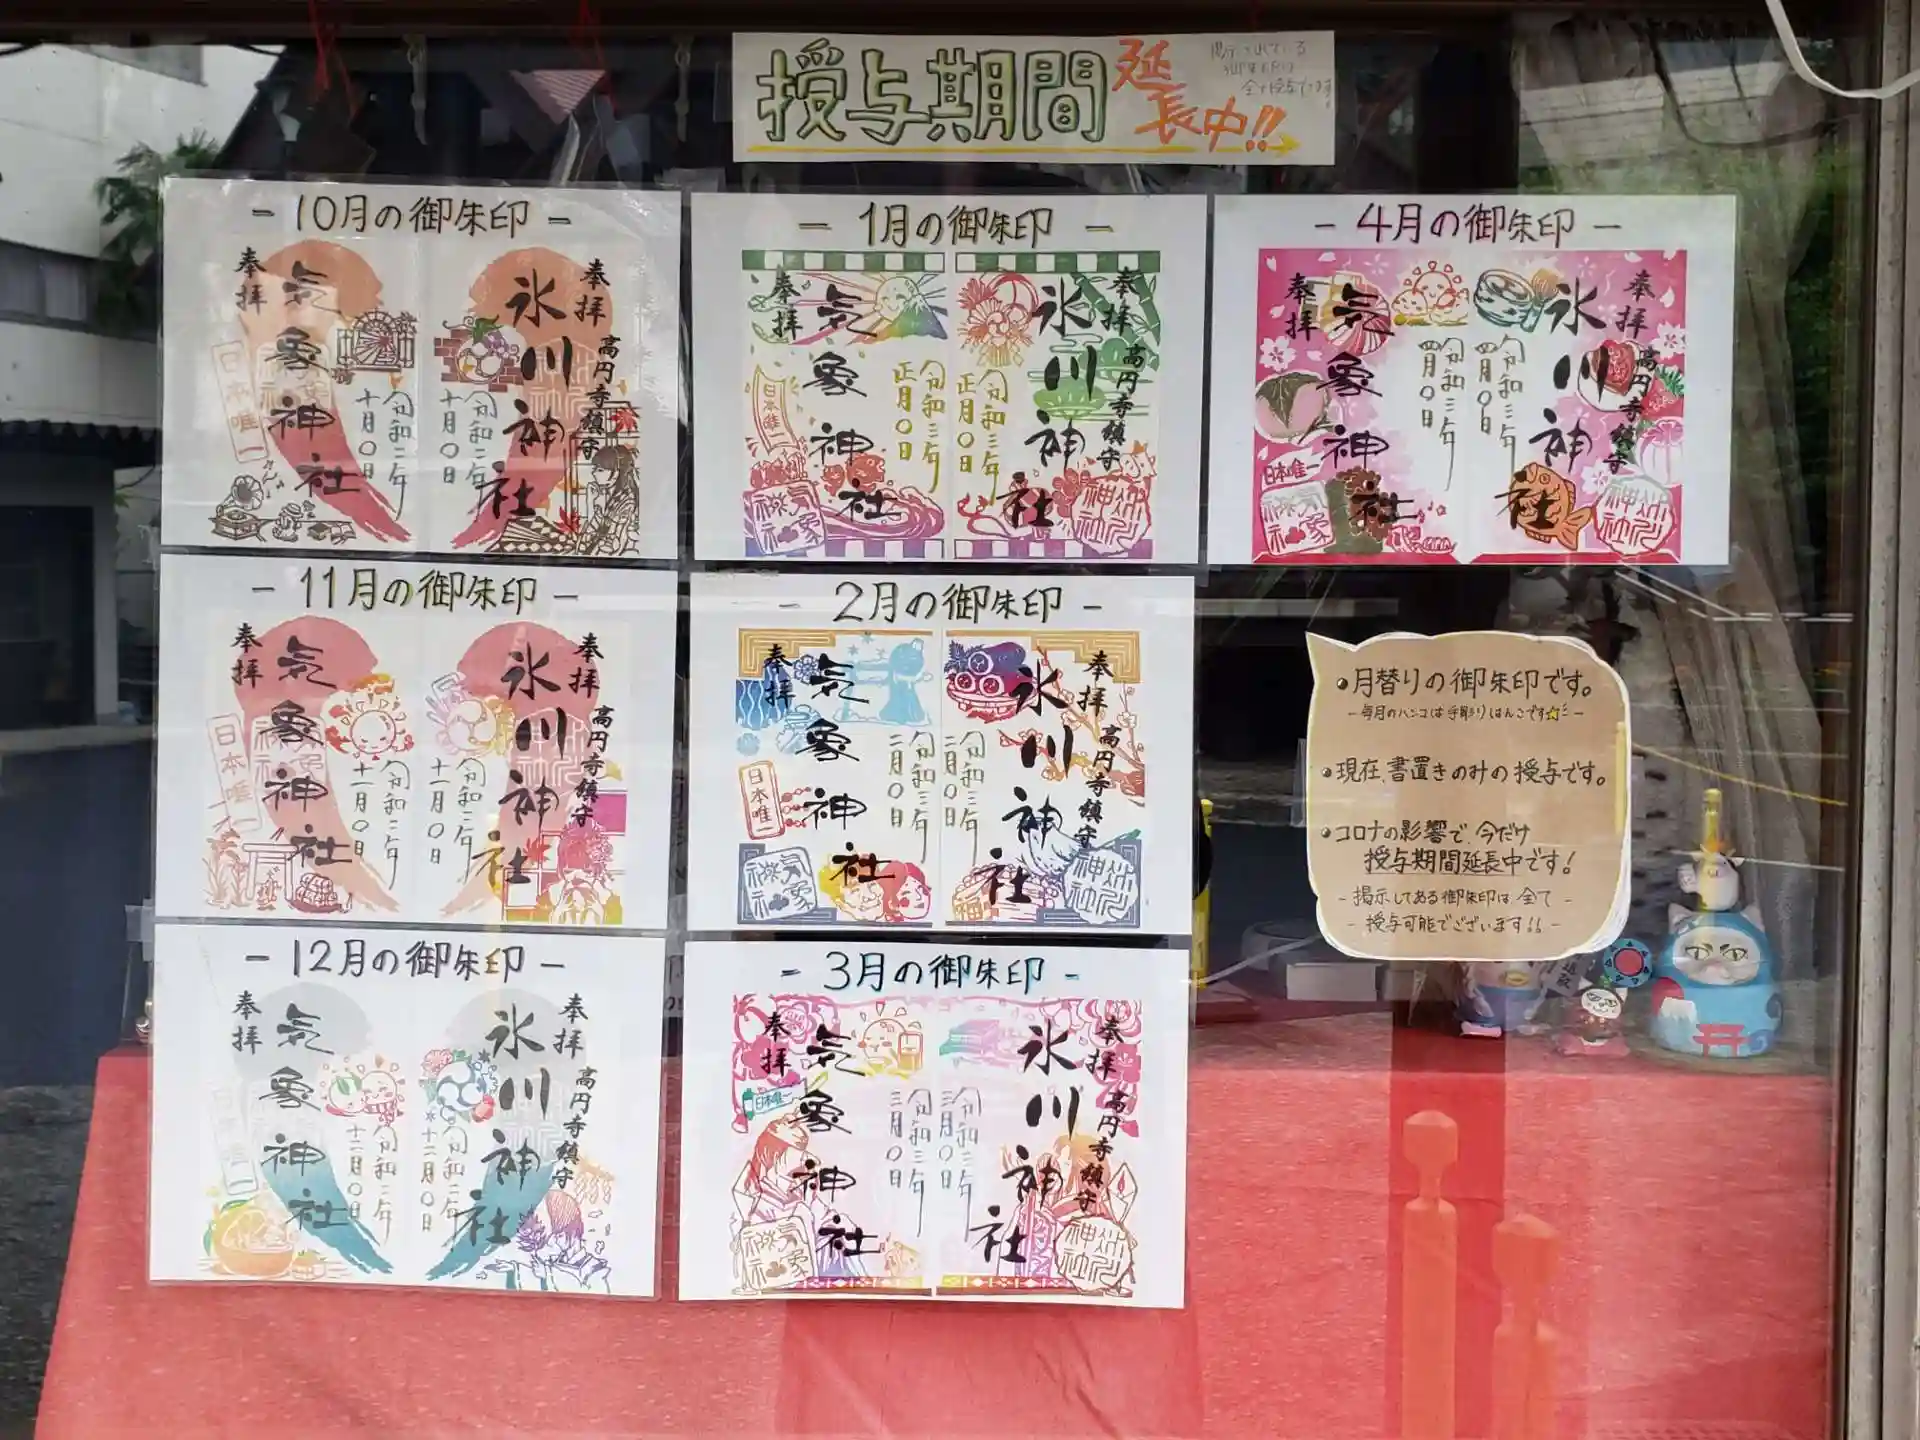 授与期間延長中!!
掲示されている
御朱印は
全て授与できます!
- 10月の御朱印 -
奉拝
気象神社
日本唯一
令和二年
十月〇日
奉拝
高円寺鎮守
氷川神社
令和二年
十月〇日
- 11月の御朱印 -
奉拝
気象神社
日本唯一
令和二年
十一月〇日
奉拝
高円寺鎮守
氷川神社
令和二年
十一月〇日
- 12月の御朱印 -
奉拝
気象神社
日本唯一
令和二年
十二月〇日
奉拝
高円寺鎮守
氷川神社
令和二年
十二月〇日
- 1月の御朱印 -
奉拝
気象神社
日本唯一
令和三年
正月〇日
奉拝
高円寺鎮守
氷川神社
令和三年
正月〇日
- 2月の御朱印 -
奉拝
気象神社
日本唯一
令和三年
二月〇日
奉拝
高円寺鎮守
氷川神社
令和三年
二月〇日
- 3月の御朱印 -
奉拝
気象神社
日本唯一
令和三年
三月〇日
奉拝
高円寺鎮守
氷川神社
令和三年
三月〇日
- 4月の御朱印 -
奉拝
気象神社
日本唯一
令和三年
四月〇日
奉拝
高円寺鎮守
氷川神社
令和三年
四月〇日
•月替りの御朱印です。
-毎月のハンコは手彫りはんこです☆-
•現在、書置きのみの授与です。
•コロナの影響で、今だけ
授与期間延長中です!
- 掲示してある御朱印は、全て -
- 授与可能でございます!! -